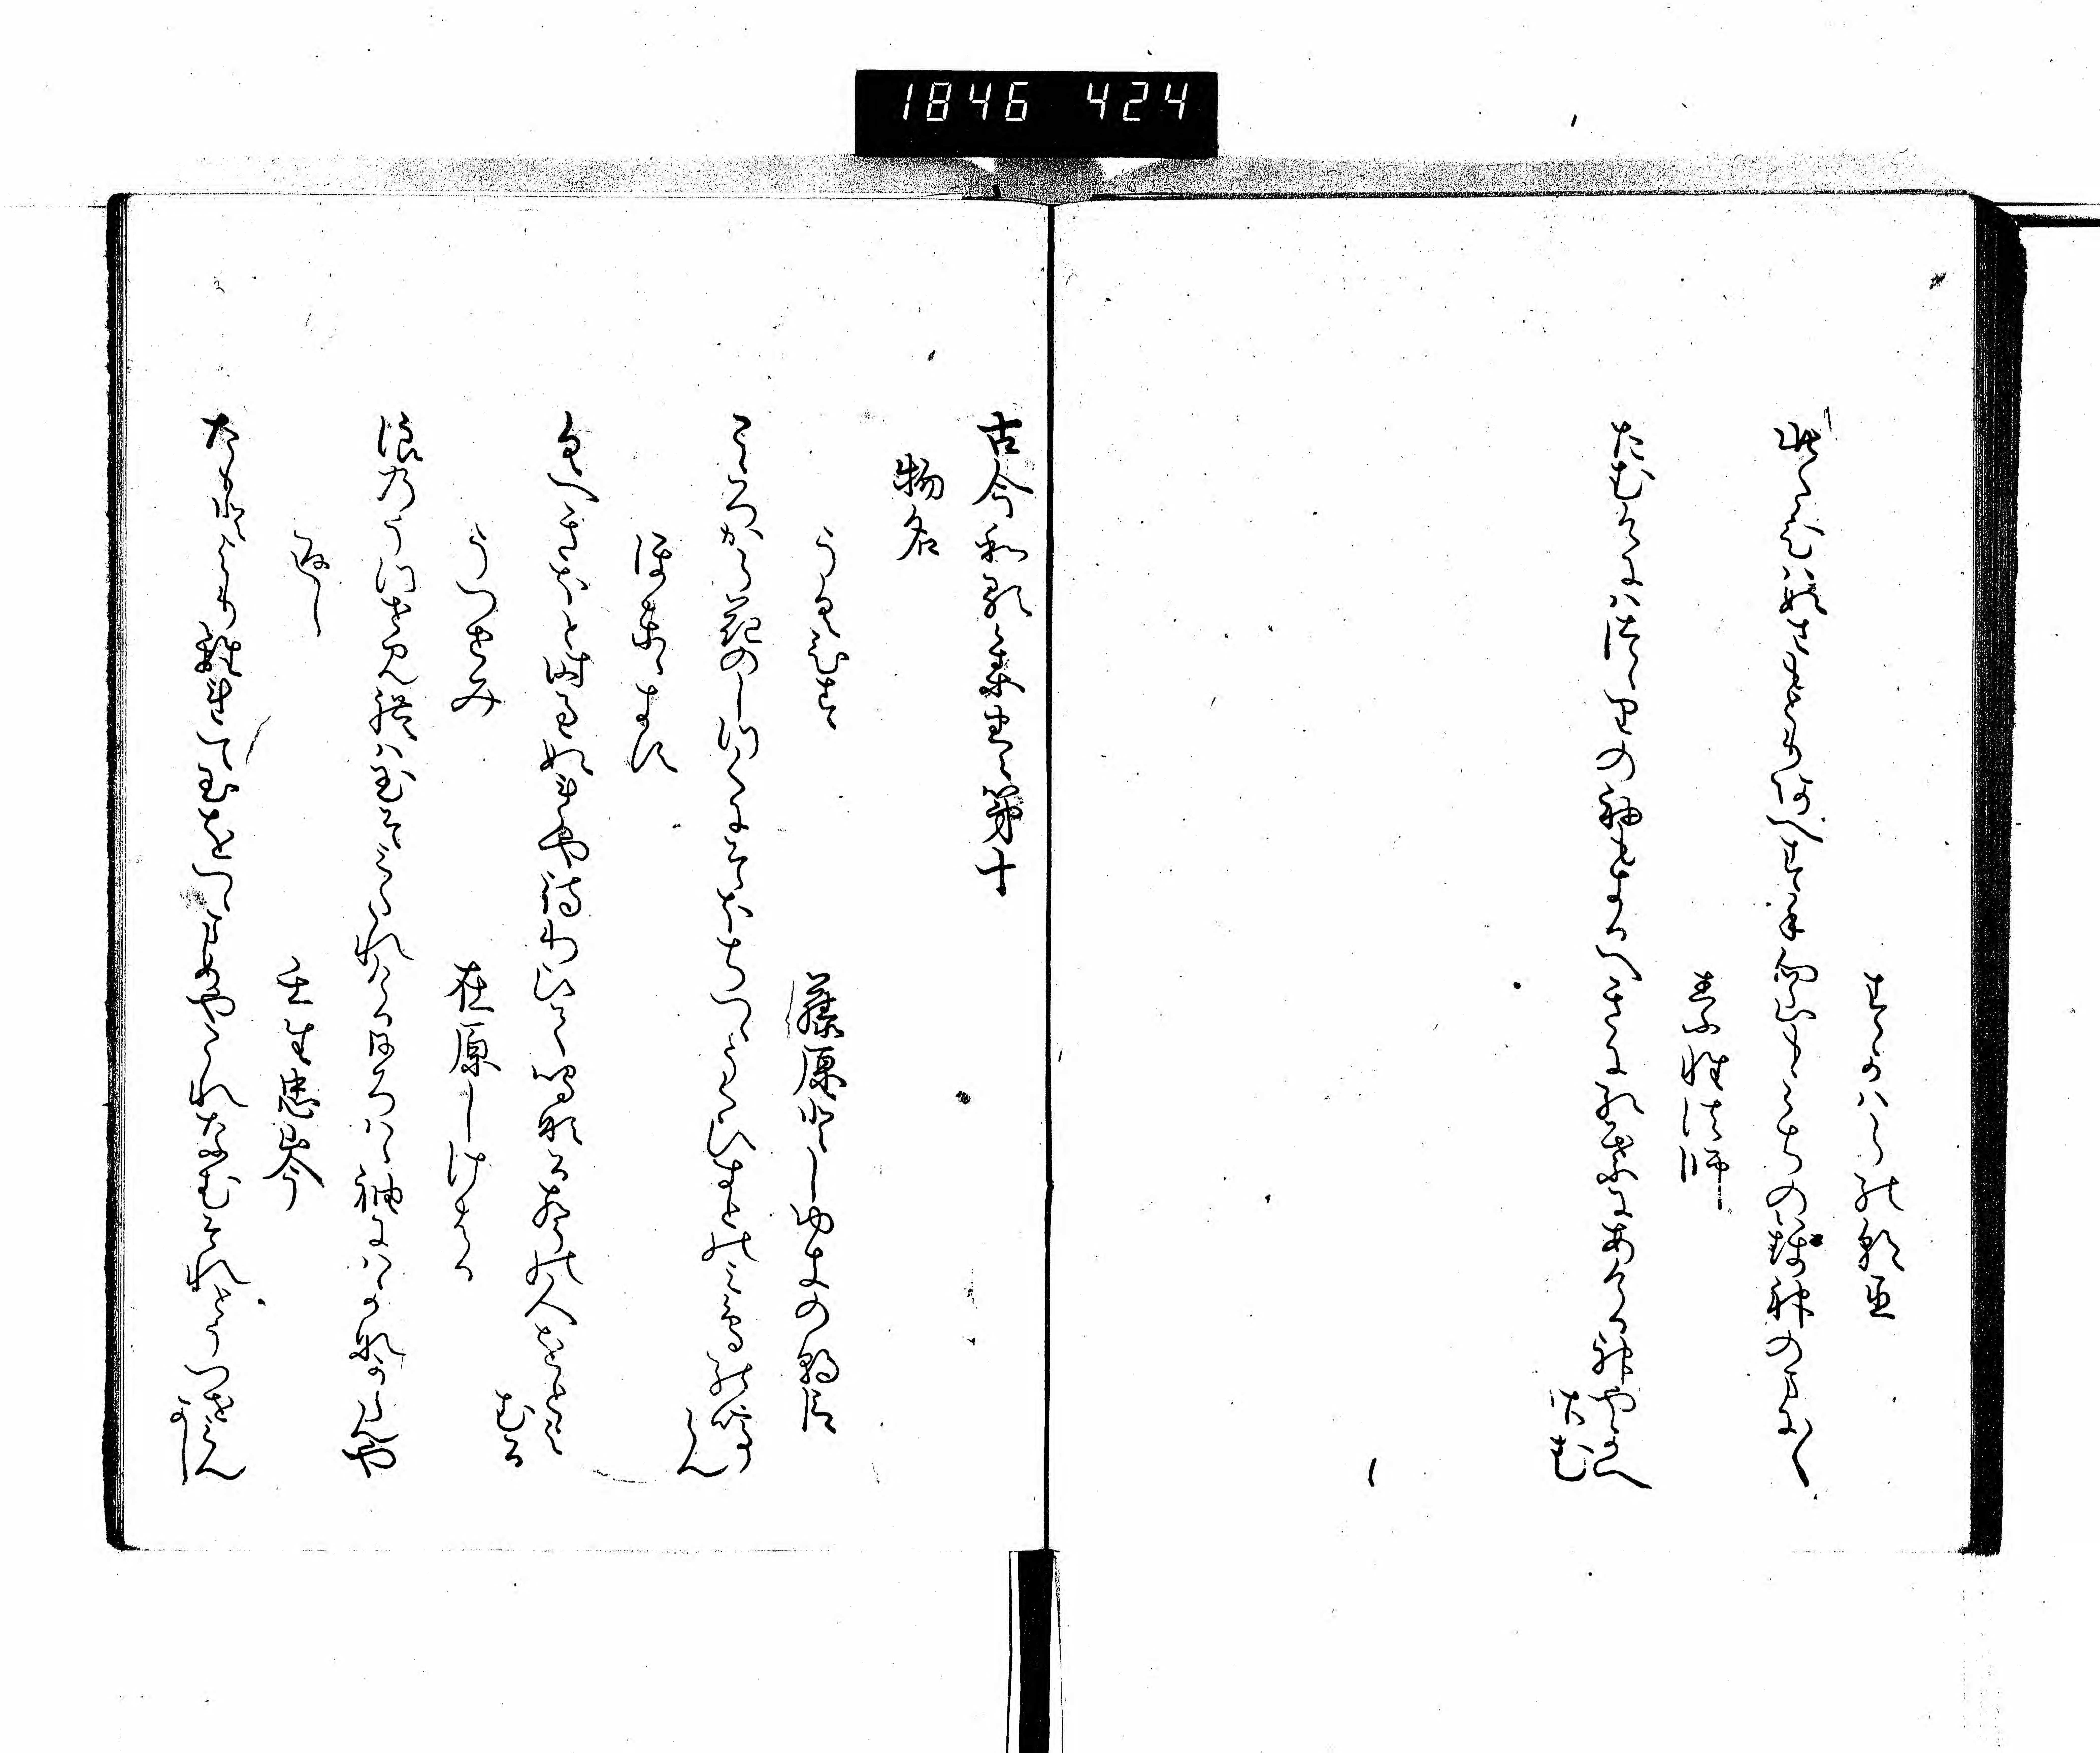 1846 424
すかはらの朝臣
此たひはぬさもとりあへす手向山もみちの錦神のまに〱
素性法師
たむけにはつゝりの袖もきるへきにもみちにあける神やかへ
さむ
古今和歌集巻第十
物名
うくひす　藤原としゆきの朝臣
こゝろから花のしつくにそほちつゝうくひすとのみ鳥の鳴
らん
ほとゝきす
くへきほと時すきぬれや待わひて鳴なる声の人をとよ
むる
うつせみ　在原しけはる
浪のうつせ見れは玉そみたれけるひろはゝ袖にはかなからんや
返し　壬生忠岑
たもとよりはなれて玉をつゝまめやこれなむそれとうつせみん
かし